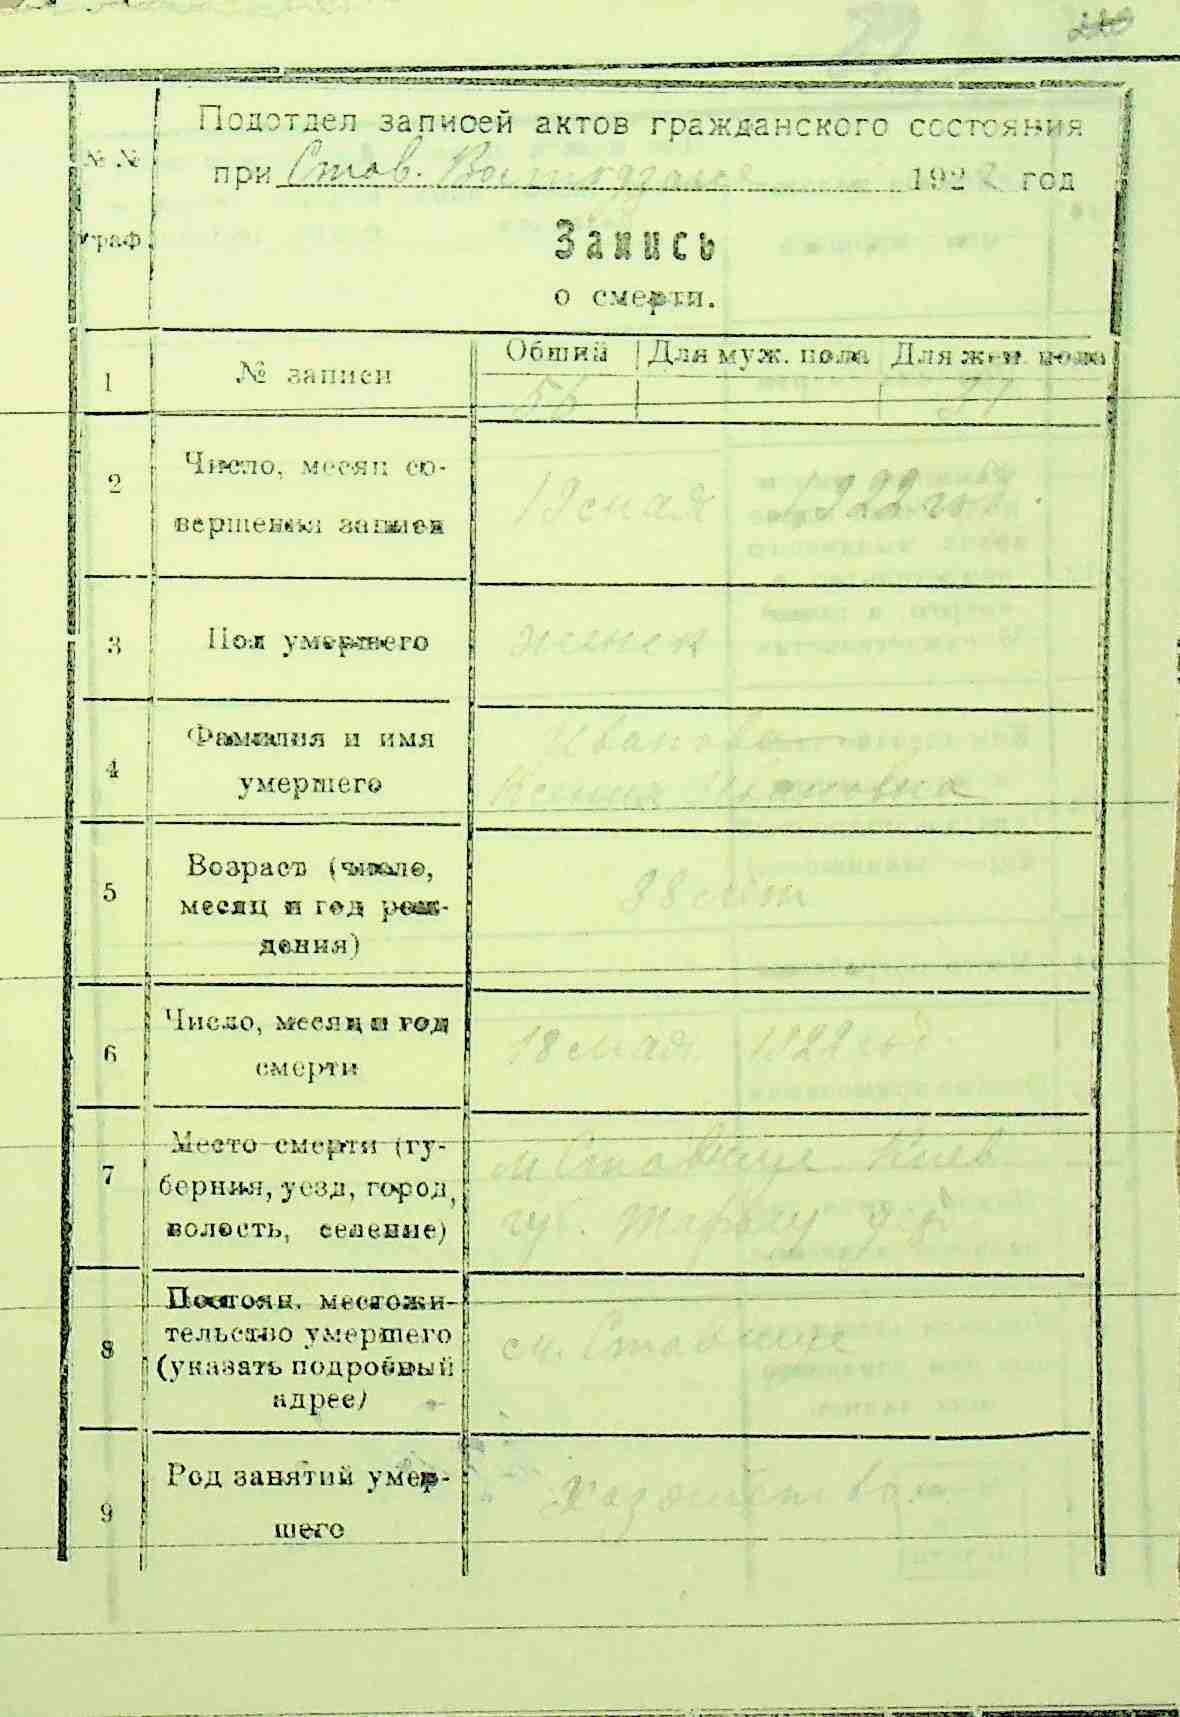 220
Подотдел записей актов гражданского состояния
при Став. 1922 год
№ №
граф
Запись
о смерти.
1 № записи Общий Для муж. пола Для жен. пола
56 27
2 Число, месяц со-
вершения записи
19 мая 1922 год.
3 Пол умершего женск
4 Фамилия и имя
умершего
Иванова
Ксения
5 Возраст (число,
месяц и год рож-
дения)
38 лет
6 Число, месяц и год
смерти
18 мая 1922 год.
7 Место смерти (гу-
берния, уезд, город,
волость, селение)
м Ставище Киев
губ. Таращ у
8 Постоян. местожи-
тельство умершего
(указать подробный
адрес)
м. Ставище
9 Род занятий умер-
шего
Хозяйство